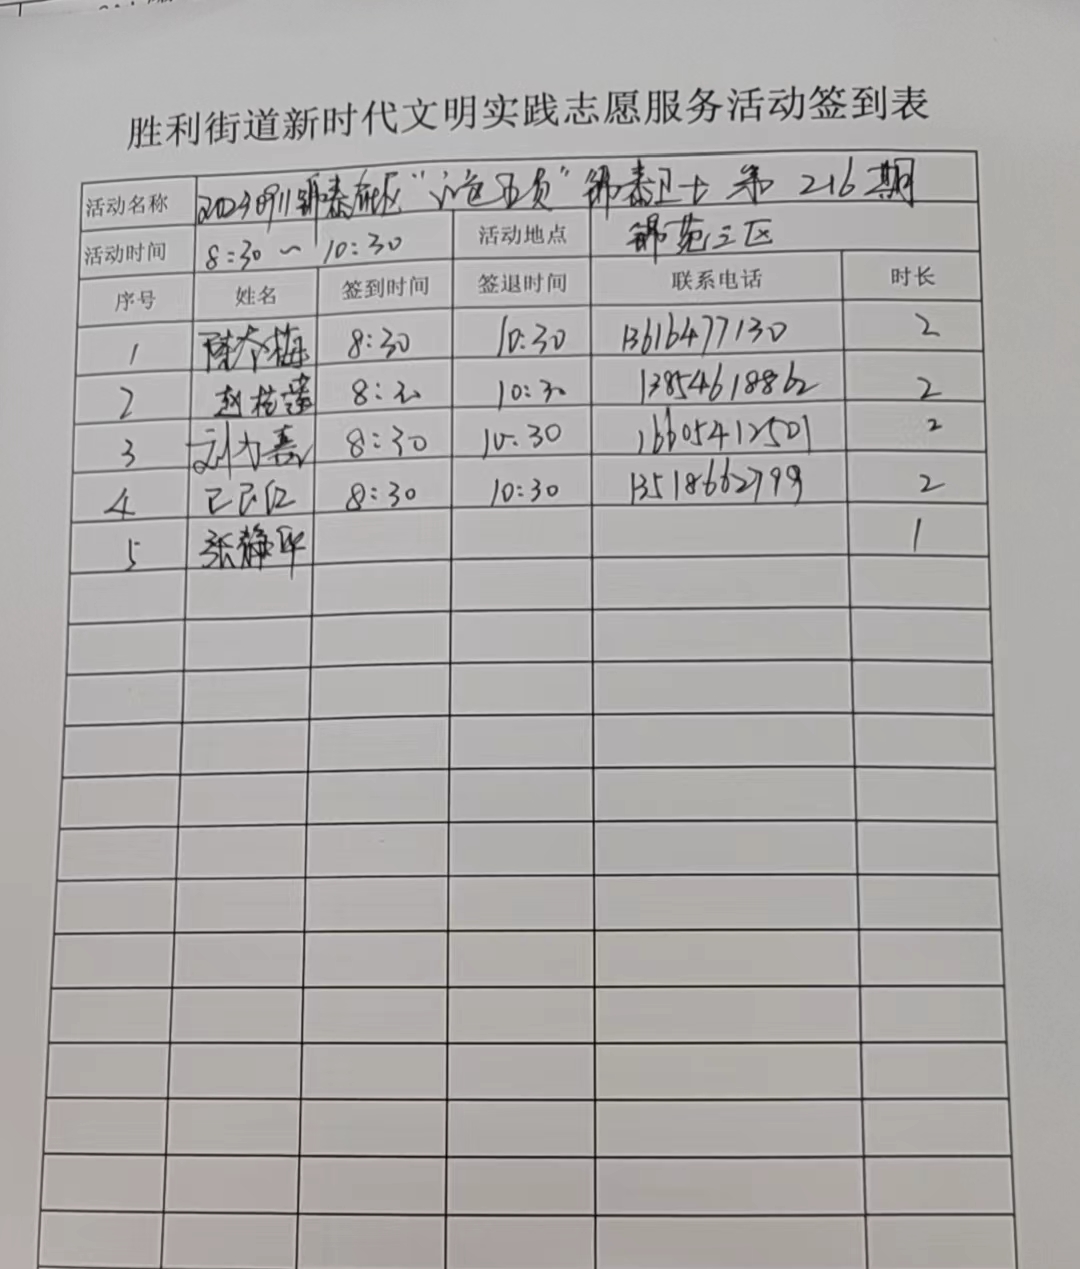 胜利街道新时代文明实践志愿服务活动签到表
活动名称 20230911锦泰社区“ ”锦泰卫士第216期
活动时间 8:30～10:30 活动地点 锦苑三区
序号 姓名 签到时间 签退时间 联系电话 时长
1 陈春梅 8:30 10:30 13616477130 2
2 赵 8:30 10:30 13854618862 2
3 刘 8:30 10:30 16605412501 2
4 8:30 10:30 13518662799 2
5 张静 1